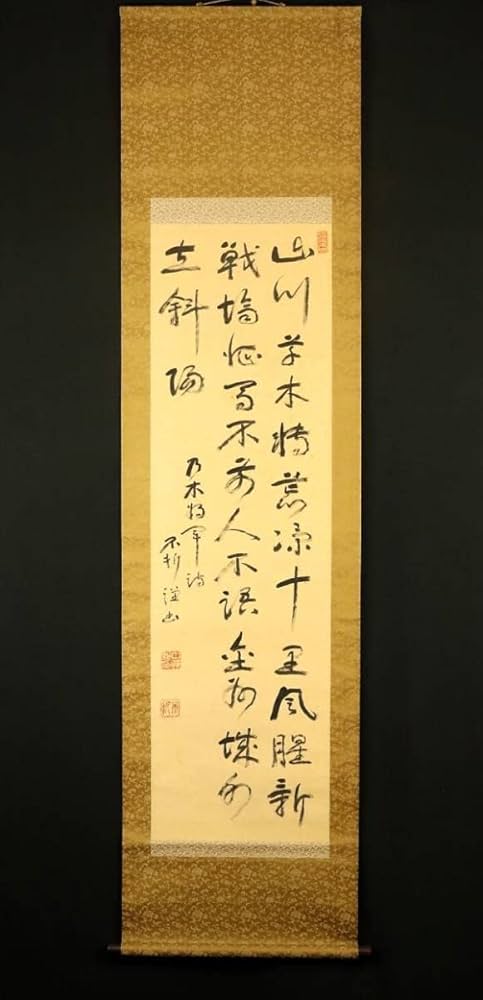 山川草木轉荒涼十里風腥新
戦塲征馬不前人不語金州城外
立斜陽
乃木将軍詩
不折謹書